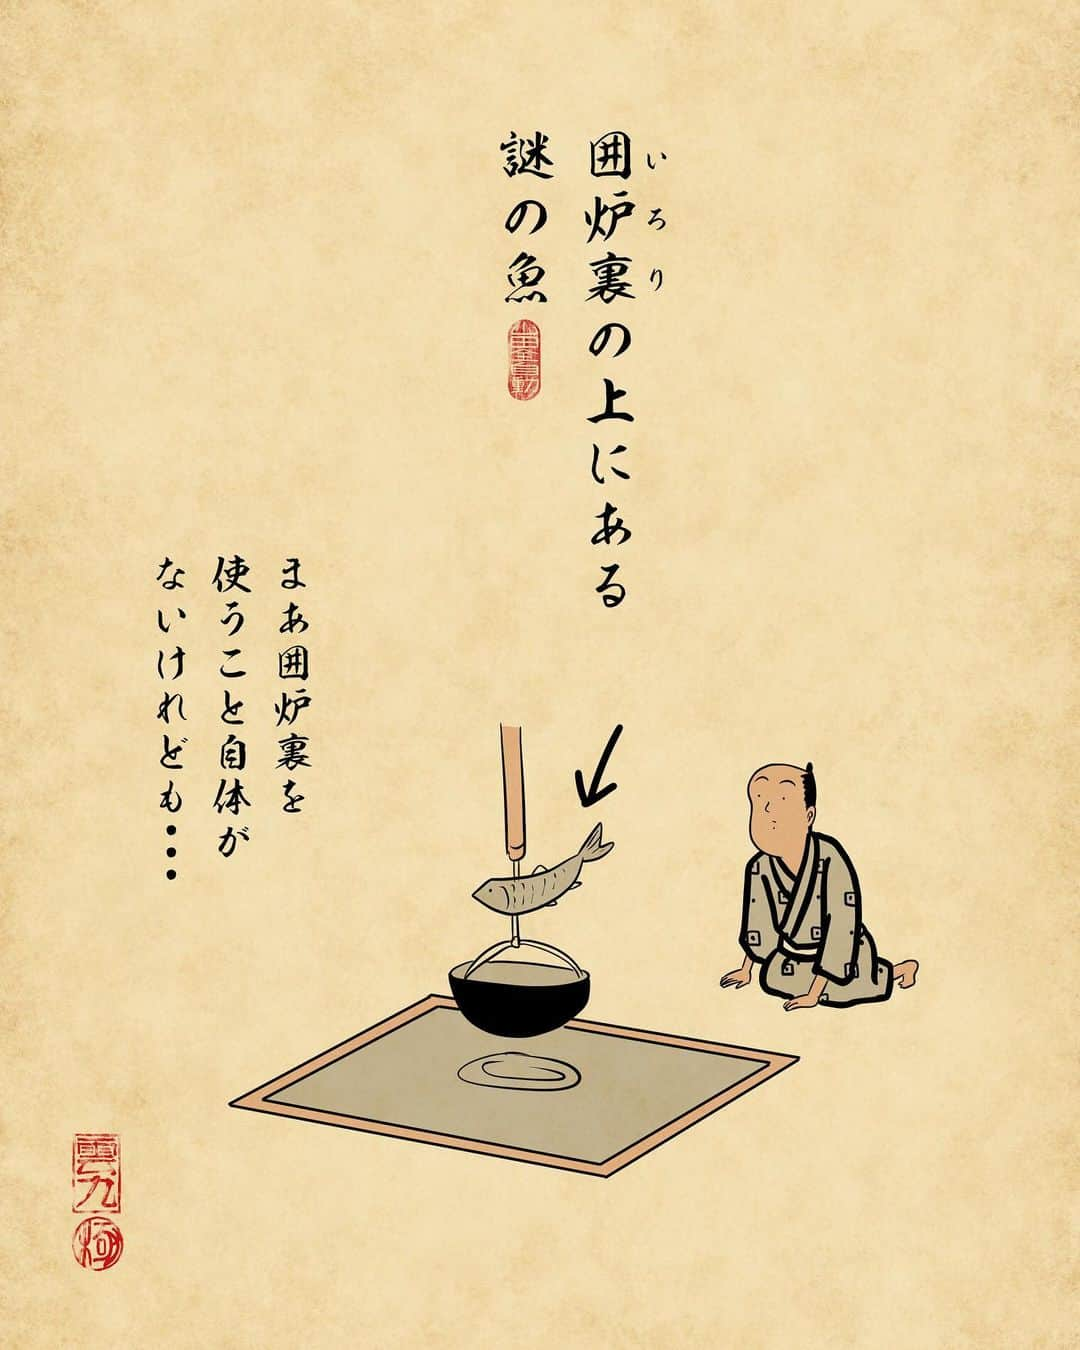 囲炉裏の上にある
いろり
謎の魚
まあ囲炉裏を
使うこと自体が
ないけれども・・・